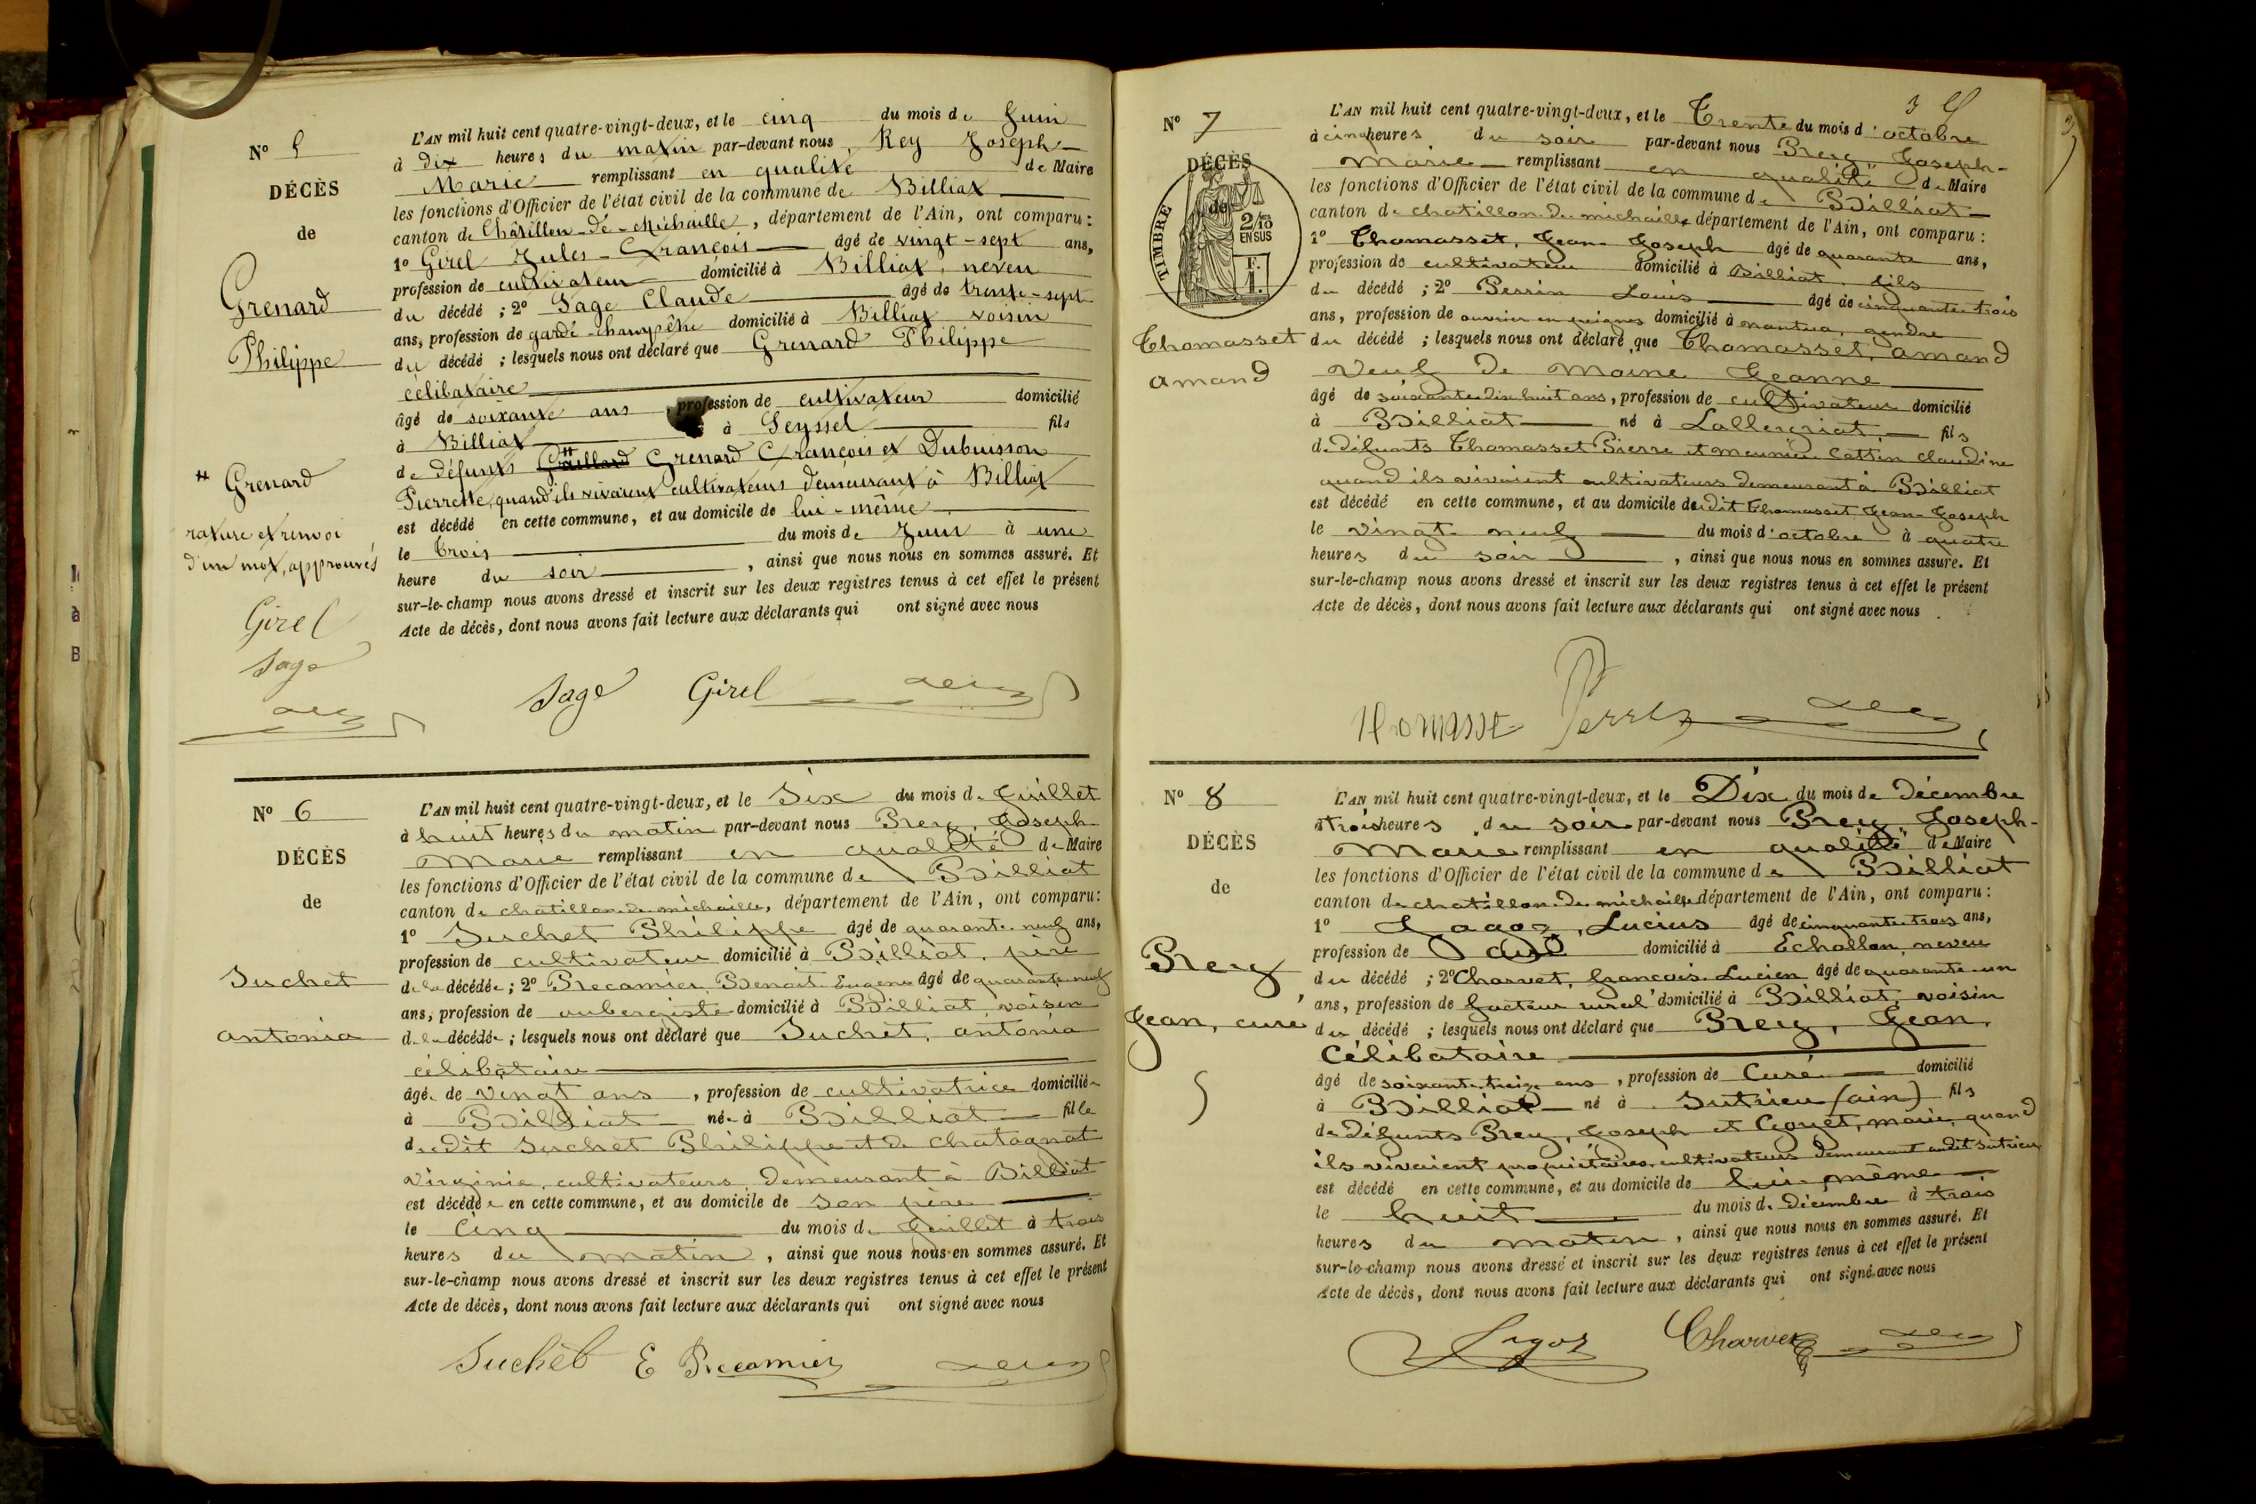 N° 5
DÉCÈS
de
Grenard
Philippe
L'AN mil huit cent quatre-vingt-deux, et le cinq du mois de Juin
à dix heures du matin par-devant nous, Rey Joseph-
Marie remplissant en qualité de Maire
les fonctions d'Officier de l'état civil de la commune de Billiat
canton de Châtillon-de-Michaille, département de l'Ain, ont comparu:
1° Girel Jules-François âgé de vingt-sept ans,
profession de cultivateur domicilié à Billiat, neveu
du décédé; 2° Sage Claude âgé de trente-sept
ans, profession de garde-champêtre domicilié à Billiat voisin
du décédé; lesquels nous ont déclaré que Grenard Philippe
célibataire
âgé de soixante ans, profession de cultivateur domicilié
à Billiat à Seyssel fils
de défunts Grenard François et Dubuisson
Pierrette, quand ils vivaient cultivateurs demeurant à Billiat
est décédé en cette commune, et au domicile de lui-même
le trois du mois de Juin à une
heure du soir, ainsi que nous nous en sommes assuré. Et
sur-le-champ nous avons dressé et inscrit sur les deux registres tenus à cet effet le présent
Acte de décès, dont nous avons fait lecture aux déclarants qui ont signé avec nous
Grenard
rature et renvoi
d'un mot, approuvés
Girel
Sage
Sage Girel
N° 6
DÉCÈS
de
Suchet
antonia
L'AN mil huit cent quatre-vingt-deux, et le Six du mois de Juillet
à huit heures du matin par-devant nous Rey, Joseph
Marie remplissant en qualité de Maire
les fonctions d'Officier de l'état civil de la commune de Billiat
canton de chatillon de michaille, département de l'Ain, ont comparu:
1° Suchet Philippe âgé de quarante-neuf ans,
profession de cultivateur domicilié à Billiat, père
de la décédée; 2° Recamier, Benoit Eugène âgé de quarante neuf
ans, profession de aubergiste domicilié à Billiat, voisin
de la décédée; lesquels nous ont déclaré que Suchet, antonia
célibataire
âgée de vingt ans, profession de cultivatrice domiciliée
à Billiat née à Billiat fille
dudit Suchet Philippe et de Chatagnat
virginie, cultivateurs demeurant à Billiat
est décédée en cette commune, et au domicile de son père
le Cinq du mois de Juillet à trois
heures du matin, ainsi que nous nous en sommes assuré. Et
sur-le-champ nous avons dressé et inscrit sur les deux registres tenus à cet effet le présent
Acte de décès, dont nous avons fait lecture aux déclarants qui ont signé avec nous
Suchet E Recamier
N° 7
DÉCÈS
de
TIMBRE
2/10
EN SUS
F.
1.
Thomasset
amand
L'AN mil huit cent quatre-vingt-deux, et le Trente du mois d'octobre
à cinq heures du soir par-devant nous Rey Joseph-
Marie remplissant en qualité de Maire
les fonctions d'Officier de l'état civil de la commune de Billiat
canton de chatillon de michaille département de l'Ain, ont comparu:
1° Thomasset, Jean Joseph âgé de quarante ans,
profession de cultivateur domicilié à Billiat, fils
du décédé; 2° Perrin Louis âgé de cinquante trois
ans, profession de ouvrier en peignes domicilié à nantua, gendre
du décédé; lesquels nous ont déclaré que Thomasset, amand
veuf de Moine Jeanne
âgé de soixante dix huit ans, profession de cultivateur domicilié
à Billiat né à Lalleyriat, fils
de défunts Thomasset Pierre et meunier Cattin claudine
quand ils vivaient cultivateurs demeurant à Billiat
est décédé en cette commune, et au domicile dudit Thomasset Jean-Joseph
le vingt neuf du mois d'octobre à quatre
heures du soir, ainsi que nous nous en sommes assuré. Et
sur-le-champ nous avons dressé et inscrit sur les deux registres tenus à cet effet le présent
Acte de décès, dont nous avons fait lecture aux déclarants qui ont signé avec nous
N° 8
DÉCÈS
de
Rey
Jean, curé
L'AN mil huit cent quatre-vingt-deux, et le Dix du mois de Décembre
à trois heures du soir par-devant nous Rey Joseph-
Marie remplissant en qualité de Maire
les fonctions d'Officier de l'état civil de la commune de Billiat
canton de chatillon de michaille département de l'Ain, ont comparu:
1° Lagoz, Lucius âgé de cinquante trois ans,
profession de curé domicilié à Echallon neveu
du décédé; 2° Charvet, françois Lucien âgé de quarante-un
ans, profession de facteur rural domicilié à Billiat, voisin
du décédé; lesquels nous ont déclaré que Rey, Jean,
Célibataire
âgé de soixante treize ans, profession de Curé domicilié
à Billiat né à Sutrieu (ain) fils
de défunts Rey, Joseph et Gouet, marie, quand
ils vivaient propriétaires cultivateurs demeurant audit Sutrieu
est décédé en cette commune, et au domicile de lui-même
le huit du mois de décembre à trois
heures du matin, ainsi que nous nous en sommes assuré. Et
sur-le-champ nous avons dressé et inscrit sur les deux registres tenus à cet effet le présent
Acte de décès, dont nous avons fait lecture aux déclarants qui ont signé avec nous
Lagoz Charvet